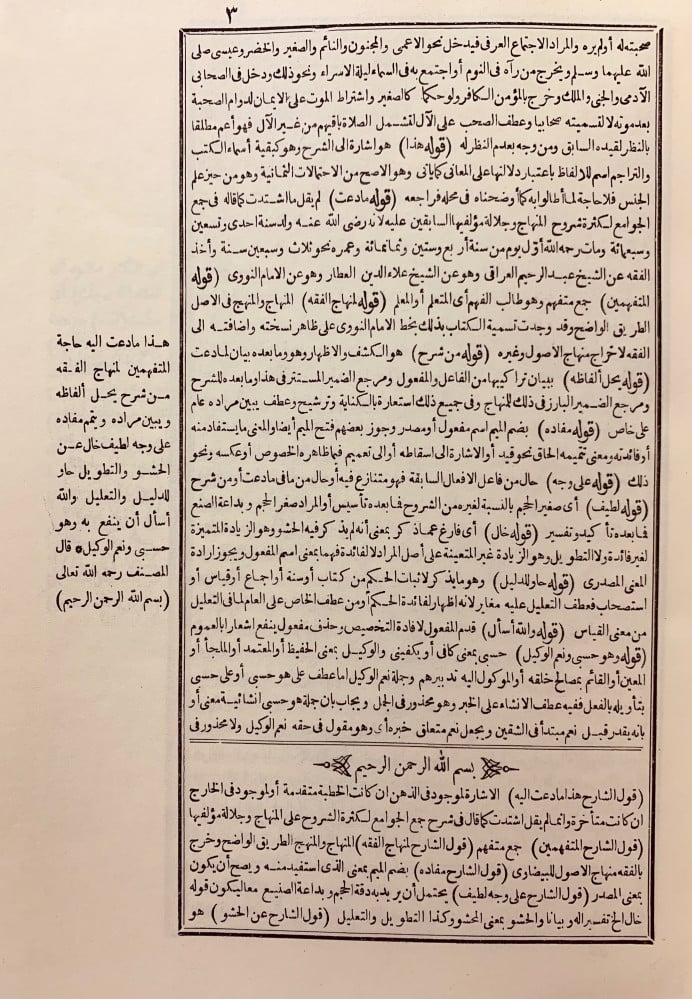 ٣
صحبته له أولم يره والمراد الاجتماع العرفى فيدخل نحو الاعمى والمجنون والنائم والصغير والخضر وعيسى صلى
الله عليهما وسلم ويخرج من رآه فى النوم أو اجتمع به فى السماء ليلة الاسراء ونحو ذلك ودخل فى الصحابى
الآدمى والجنى والملك وخرج بالمؤمن الكافر ولو حكما كالصغير واشتراط الموت على الايمان لدوام الصحبة
بعد موته لا لتسميته صحابيا وعطف الصحب على الآل لتشمل الصلاة باقيهم من غير الآل فهو أعم مطلقا
بالنظر لقيده السابق ومن وجه بعدم النظر له (قوله هذا) هو اشارة الى الشرح وهو كبقية أسماء الكتب
والتراجم اسم للالفاظ باعتبار دلالتها على المعانى كما يأتى وهو الاصح من الاحتمالات الثمانية وهو من حيز علم
الجنس فلا حاجة لما أطالوا به كما أوضحناه فى محله فراجعه (قوله ما دعت) لم يقل ما اشتدت كما قاله فى جمع
الجوامع لكثرة شروح المنهاج وجلالة مؤلفيها السابقين عليه لانه رضى الله عنه ولد سنة احدى وتسعين
وسبعمائة ومات رحمه الله أول يوم من سنة أربع وستين وثمانمائة وعمره نحو ثلاث وسبعين سنة وأخذ
الفقه عن الشيخ عبد الرحيم العراقى وهو عن الشيخ علاء الدين العطار وهو عن الامام النووى (قوله
المتفهمين) جمع متفهم وهو طالب الفهم أى المتعلم أو المعلم (قوله لمنهاج الفقه) المنهاج والمنهج فى الاصل
الطريق الواضح وقد وجدت تسمية الكتاب بذلك بخط الامام النووى على ظاهر نسخته واضافته الى
الفقه لاخراج منهاج الاصول وغيره (قوله من شرح) هو الكشف والاظهار وهو وما بعده بيان لما دعت
(قوله يحل ألفاظه) ببيان تراكيبها من الفاعل والمفعول ومرجع الضمير المستتر فى هذا وما بعده للشرح
ومرجع الضمير البارز فى ذلك للمنهاج وفى جميع ذلك استعارة بالكناية وترشيح وعطف يبين مراده عام
على خاص (قوله مفاده) بضم الميم اسم مفعول أو مصدر وجوز بعضهم فتح الميم أيضا والمعنى ما يستفاد منه
أو فائدته ومعنى تتميمه الحاق نحو قيد أو الاشارة الى اسقاطه أو الى تعميم فما ظاهره الخصوص أو عكسه ونحو
ذلك (قوله على وجه) حال من فاعل الافعال السابقة فهو متنازع فيه أو حال من ما فى ما دعت أو من شرح
(قوله لطيف) أى صغير الحجم بالنسبة لغيره من الشروح فما بعده تأسيس أو المراد صغر الحجم وبداعة الصنع
فما بعده تأكيد وتفسير (قوله خال) أى فارغ عما ذكر بمعنى أنه لم يذكر فيه الحشو وهو الزيادة المتميزة
لغير فائدة ولا التطويل وهو الزيادة غير المتعينة على أصل المراد لا لفائدة فهما بمعنى اسم المفعول ويجوز ارادة
المعنى المصدرى (قوله حاو للدليل) وهو ما يذكر لاثبات الحكم من كتاب أو سنة أو اجماع أو قياس أو
استصحاب فعطف التعليل عليه مغاير لانه اظهار لفائدة الحكم أو من عطف الخاص على العام لما فى التعليل
من معنى القياس (قوله والله أسأل) قدم المفعول لافادة التخصيص وحذف مفعول ينفع اشعارا بالعموم
(قوله وهو حسبى ونعم الوكيل) حسبى بمعنى كافى أو يكفينى والوكيل بمعنى الحفيظ أو المعتمد أو الملجأ أو
المعين أو القائم بمصالح خلقه أو الموكول اليه تدبيرهم وجملة نعم الوكيل اما عطف على هو حسبى أو على حسبى
بتأويله بالفعل ففيه عطف الانشاء على الخبر وهو محذور فى الجمل ويجاب بان جملة هو حسبى انشائية معنى أو
بانه يقدر قبل نعم مبتدأ فى الشقين ويجعل نعم متعلق خبره أى وهو مقول فى حقه نعم الوكيل ولا محذور فى
هذا ما دعت اليه حاجة
المتفهمين لمنهاج الفقه
من شرح يحل ألفاظه
ويبين مراده ويتمم مفاده
على وجه لطيف خال عن
الحشو والتطويل حاو
للدليل والتعليل والله
أسأل أن ينفع به وهو
حسبى ونعم الوكيل * قال
المصنف رحمه الله تعالى
(بسم الله الرحمن الرحيم)
بسم الله الرحمن الرحيم
(قول الشارح هذا ما دعت اليه) الاشارة لموجود فى الذهن ان كانت الخطبة متقدمة أو لموجود فى الخارج
ان كانت متأخرة وانما لم يقل اشتدت كما قال فى شرح جمع الجوامع لكثرة الشروح على المنهاج وجلالة مؤلفيها
(قول الشارح المتفهمين) جمع متفهم (قول الشارح لمنهاج الفقه) المنهاج والمنهج الطريق الواضح وخرج
بالفقه منهاج الاصول للبيضاوى (قول الشارح مفاده) بضم الميم بمعنى الذى استفيد منه ويصح أن يكون
بمعنى المصدر (قول الشارح على وجه لطيف) يحتمل أن يريد به دقة الحجم وبداعة الصنيع معا ليكون قوله
خال الخ تفسيرا له وبيانا والحشو بمعنى المحشو وكذا التطويل والتعليل (قول الشارح عن الحشو) هو